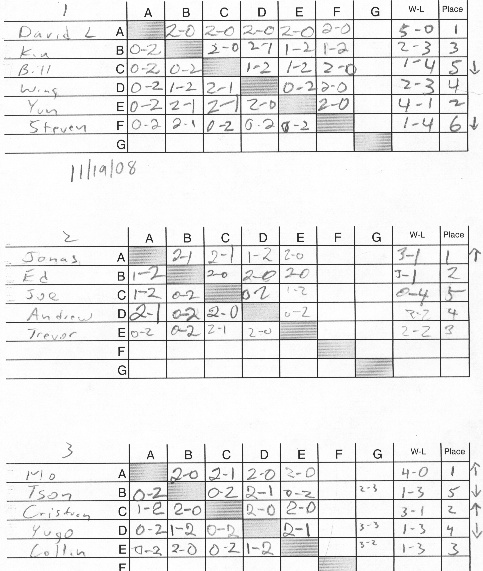 1 A B C D E F G W-L Place
David L A 2-0 2-0 2-0 2-0 2-0 5-0 1
Kin B 0-2 2-0 2-1 1-2 1-2 2-3 3
Bill C 0-2 0-2 1-2 1-2 2-0 1-4 5 ↓
Wing D 0-2 1-2 2-1 0-2 2-0 2-3 4
Yun E 0-2 2-1 2-1 2-0 2-0 4-1 2
Steven F 0-2 2-1 0-2 0-2 0-2 1-4 6 ↓
G
11/19/08
2 A B C D E F G W-L Place
Jonas A 2-1 2-1 1-2 2-0 3-1 1 ↑
Ed B 1-2 2-0 2-0 2-0 3-1 2
Joe C 1-2 0-2 0-2 1-2 0-4 5
Andrew D 2-1 0-2 2-0 0-2 2-2 4
Trevor E 0-2 0-2 2-1 2-0 2-2 3
F
G
3 A B C D E F G W-L Place
Mo A 2-0 2-1 2-0 2-0 4-0 1 ↑
Tson B 0-2 0-2 2-1 0-2 2-3 1-3 5 ↓
C 1-2 2-0 2-0 2-0 3-1 2 ↑
Yugo D 0-2 1-2 0-2 2-1 3-3 1-3 4 ↓
Collin E 0-2 2-0 0-2 1-2 3-2 1-3 3
F